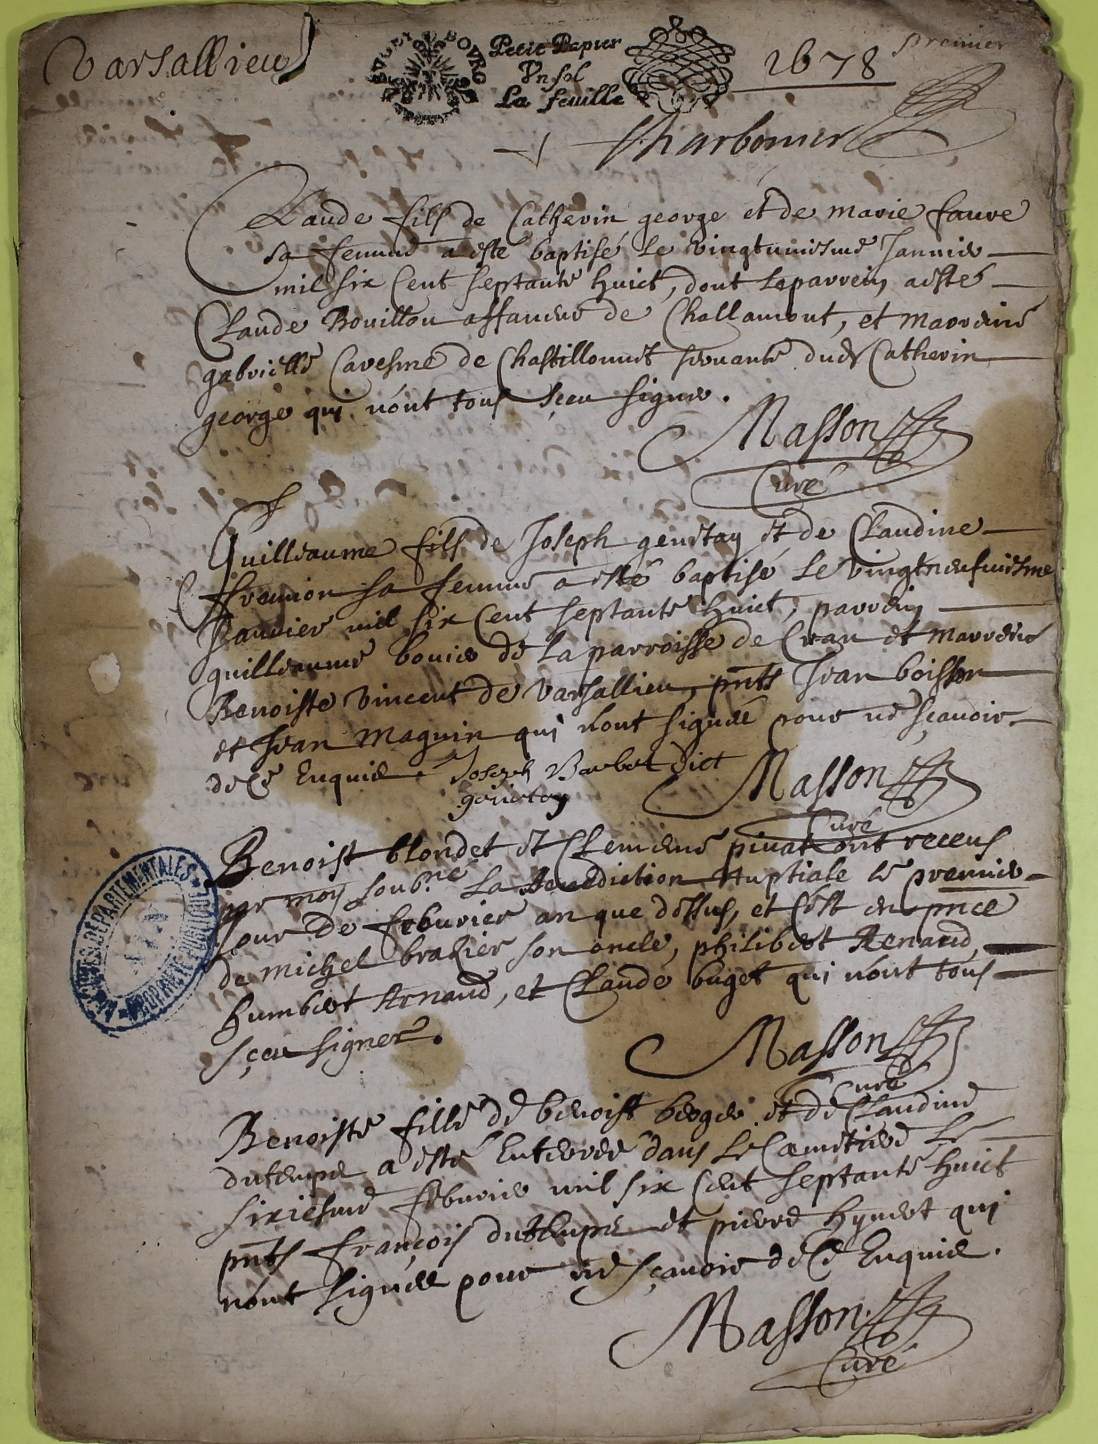 Varsallieu
BVGEY BOVRG
Petit Papier
Vn sol
La feuille
1678
premier
Charbonier
Claude fils de Catherin george et de marie faure
sa femme a esté baptisé le vingtuniesme Janvier
mil six cent septante huict, dont le parrein a esté
Claude Bouillou affaneur de Challamont, et marreine
gabrielle Cavesme de Chastillonnet servante dud Catherin
george qui n'ont tous sçeu signer.
Masson
Curé
Guilleaume fils de Joseph genetay et de Claudine
fremion sa femme a esté baptisé le vingtneufuiesme
Janvier mil six cent septante huict, parrein
guilleaume bouvier de la parroisse de Cran et marreine
Benoiste Vincent de Varsallieu, pnts Jean boisson
et Jean maguin qui n'ont signée pour ne sçavoir
de ce Enquis. Joseph Barbet dict
genetay
Masson
Curé
Benoist blondet et Clemence pivat ont receus
par moy soubne La Benediction Nuptiale le premier
Jour de febvrier an que dessus, et c'est en pnce
de michel brazier son oncle, philibert Renaud,
humbert Arnaud, et Claude buget qui n'ont tous
sçeu signer.
Masson
Curé
ARCHIVES DÉPARTEMENTALES
PROPRIÉTÉ PUBLIQUE
Benoiste fille de benoist berger et de Claudine
dutempe a esté Enterrée dans le Cœmetiere le
sixiesme febvrier mil six cent septante huict
pnts françois dutempe et pierre hyvert qui
n'ont signée pour ne sçavoir de ce Enquis.
Masson
Curé